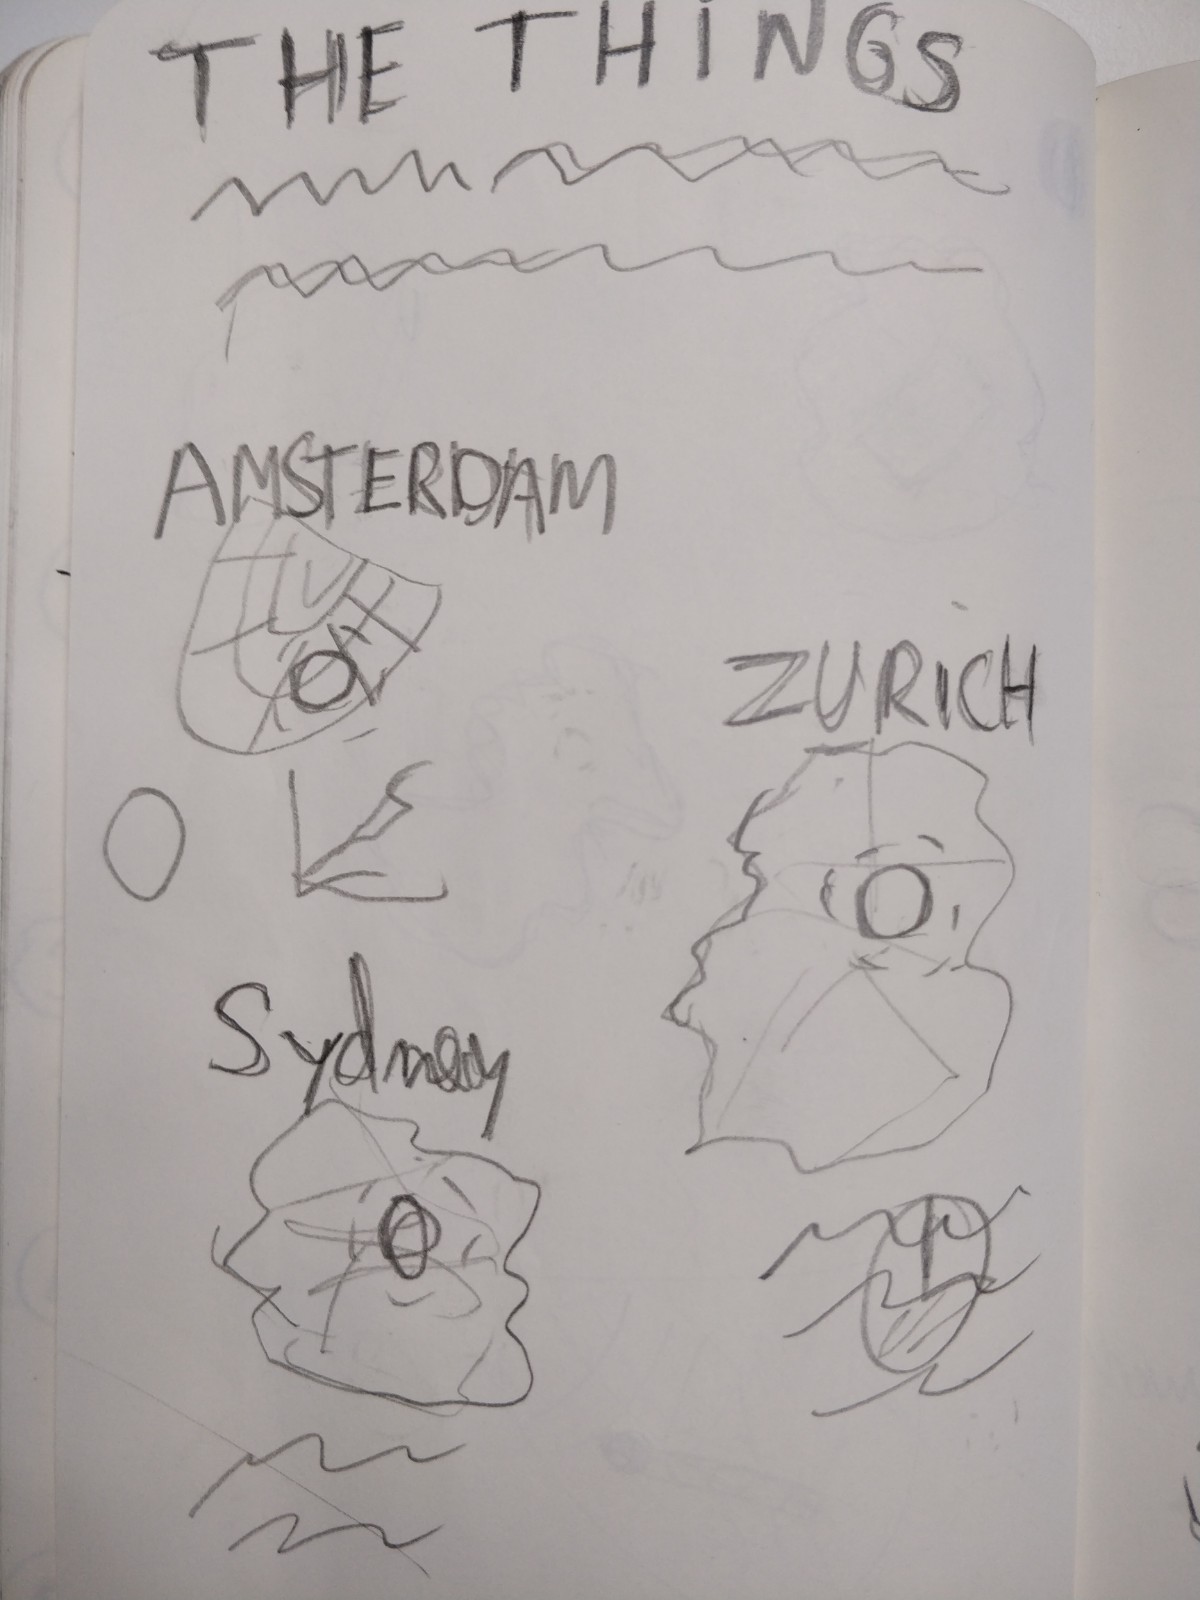 THE THINGS
AMSTERDAM
ZURICH
Sydney